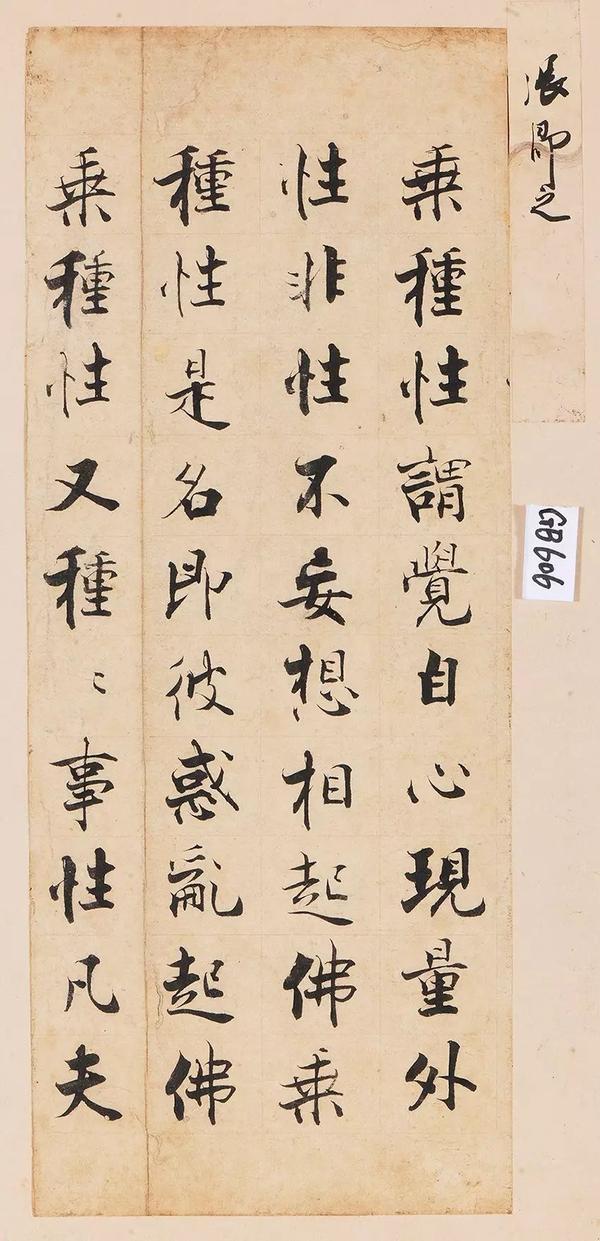 張即之
乗種性謂覺自心現量外
性非性不妄想相起佛乗
種性是名即彼惑亂起佛
乗種性又種〻事性凡夫
GB606